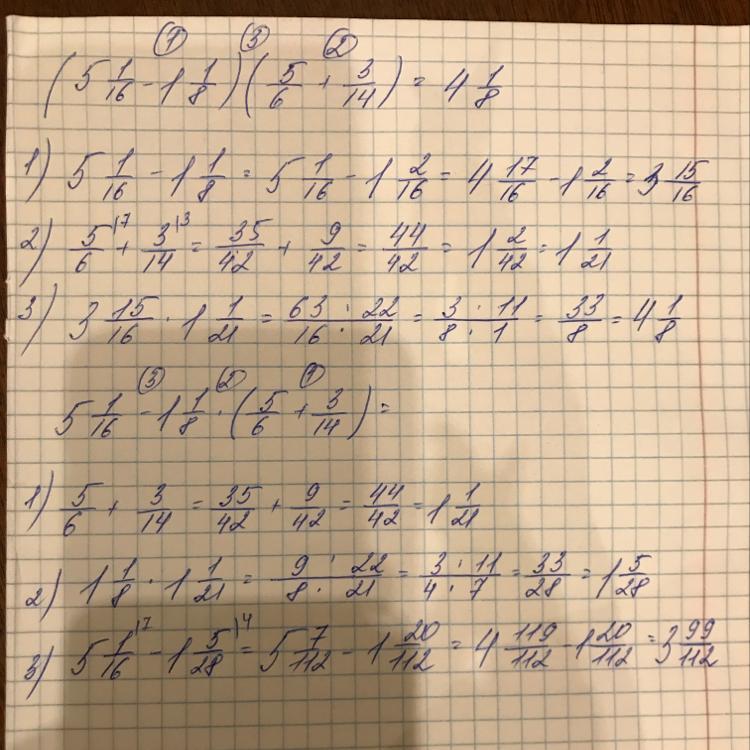 ① ③ ②
(5 1/16 - 1 1/8)(5/6 + 3/14) = 4 1/8
1) 5 1/16 - 1 1/8 = 5 1/16 - 1 2/16 = 4 17/16 - 1 2/16 = 3 15/16
2) 5/6 |7 + 3/14 |3 = 35/42 + 9/42 = 44/42 = 1 2/42 = 1 1/21
3) 3 15/16 · 1 1/21 = 63 · 22/16 · 21 = 3 · 11/8 · 1 = 33/8 = 4 1/8
③ ② ①
5 1/16 - 1 1/8 · (5/6 + 3/14) =
1) 5/6 + 3/14 = 35/42 + 9/42 = 44/42 = 1 1/21
2) 1 1/8 · 1 1/21 = 9 · 22/8 · 21 = 3 · 11/4 · 7 = 33/28 = 1 5/28
3) 5 1/16 |7 - 1 5/28 |4 = 5 7/112 - 1 20/112 = 4 119/112 - 1 20/112 = 3 99/112